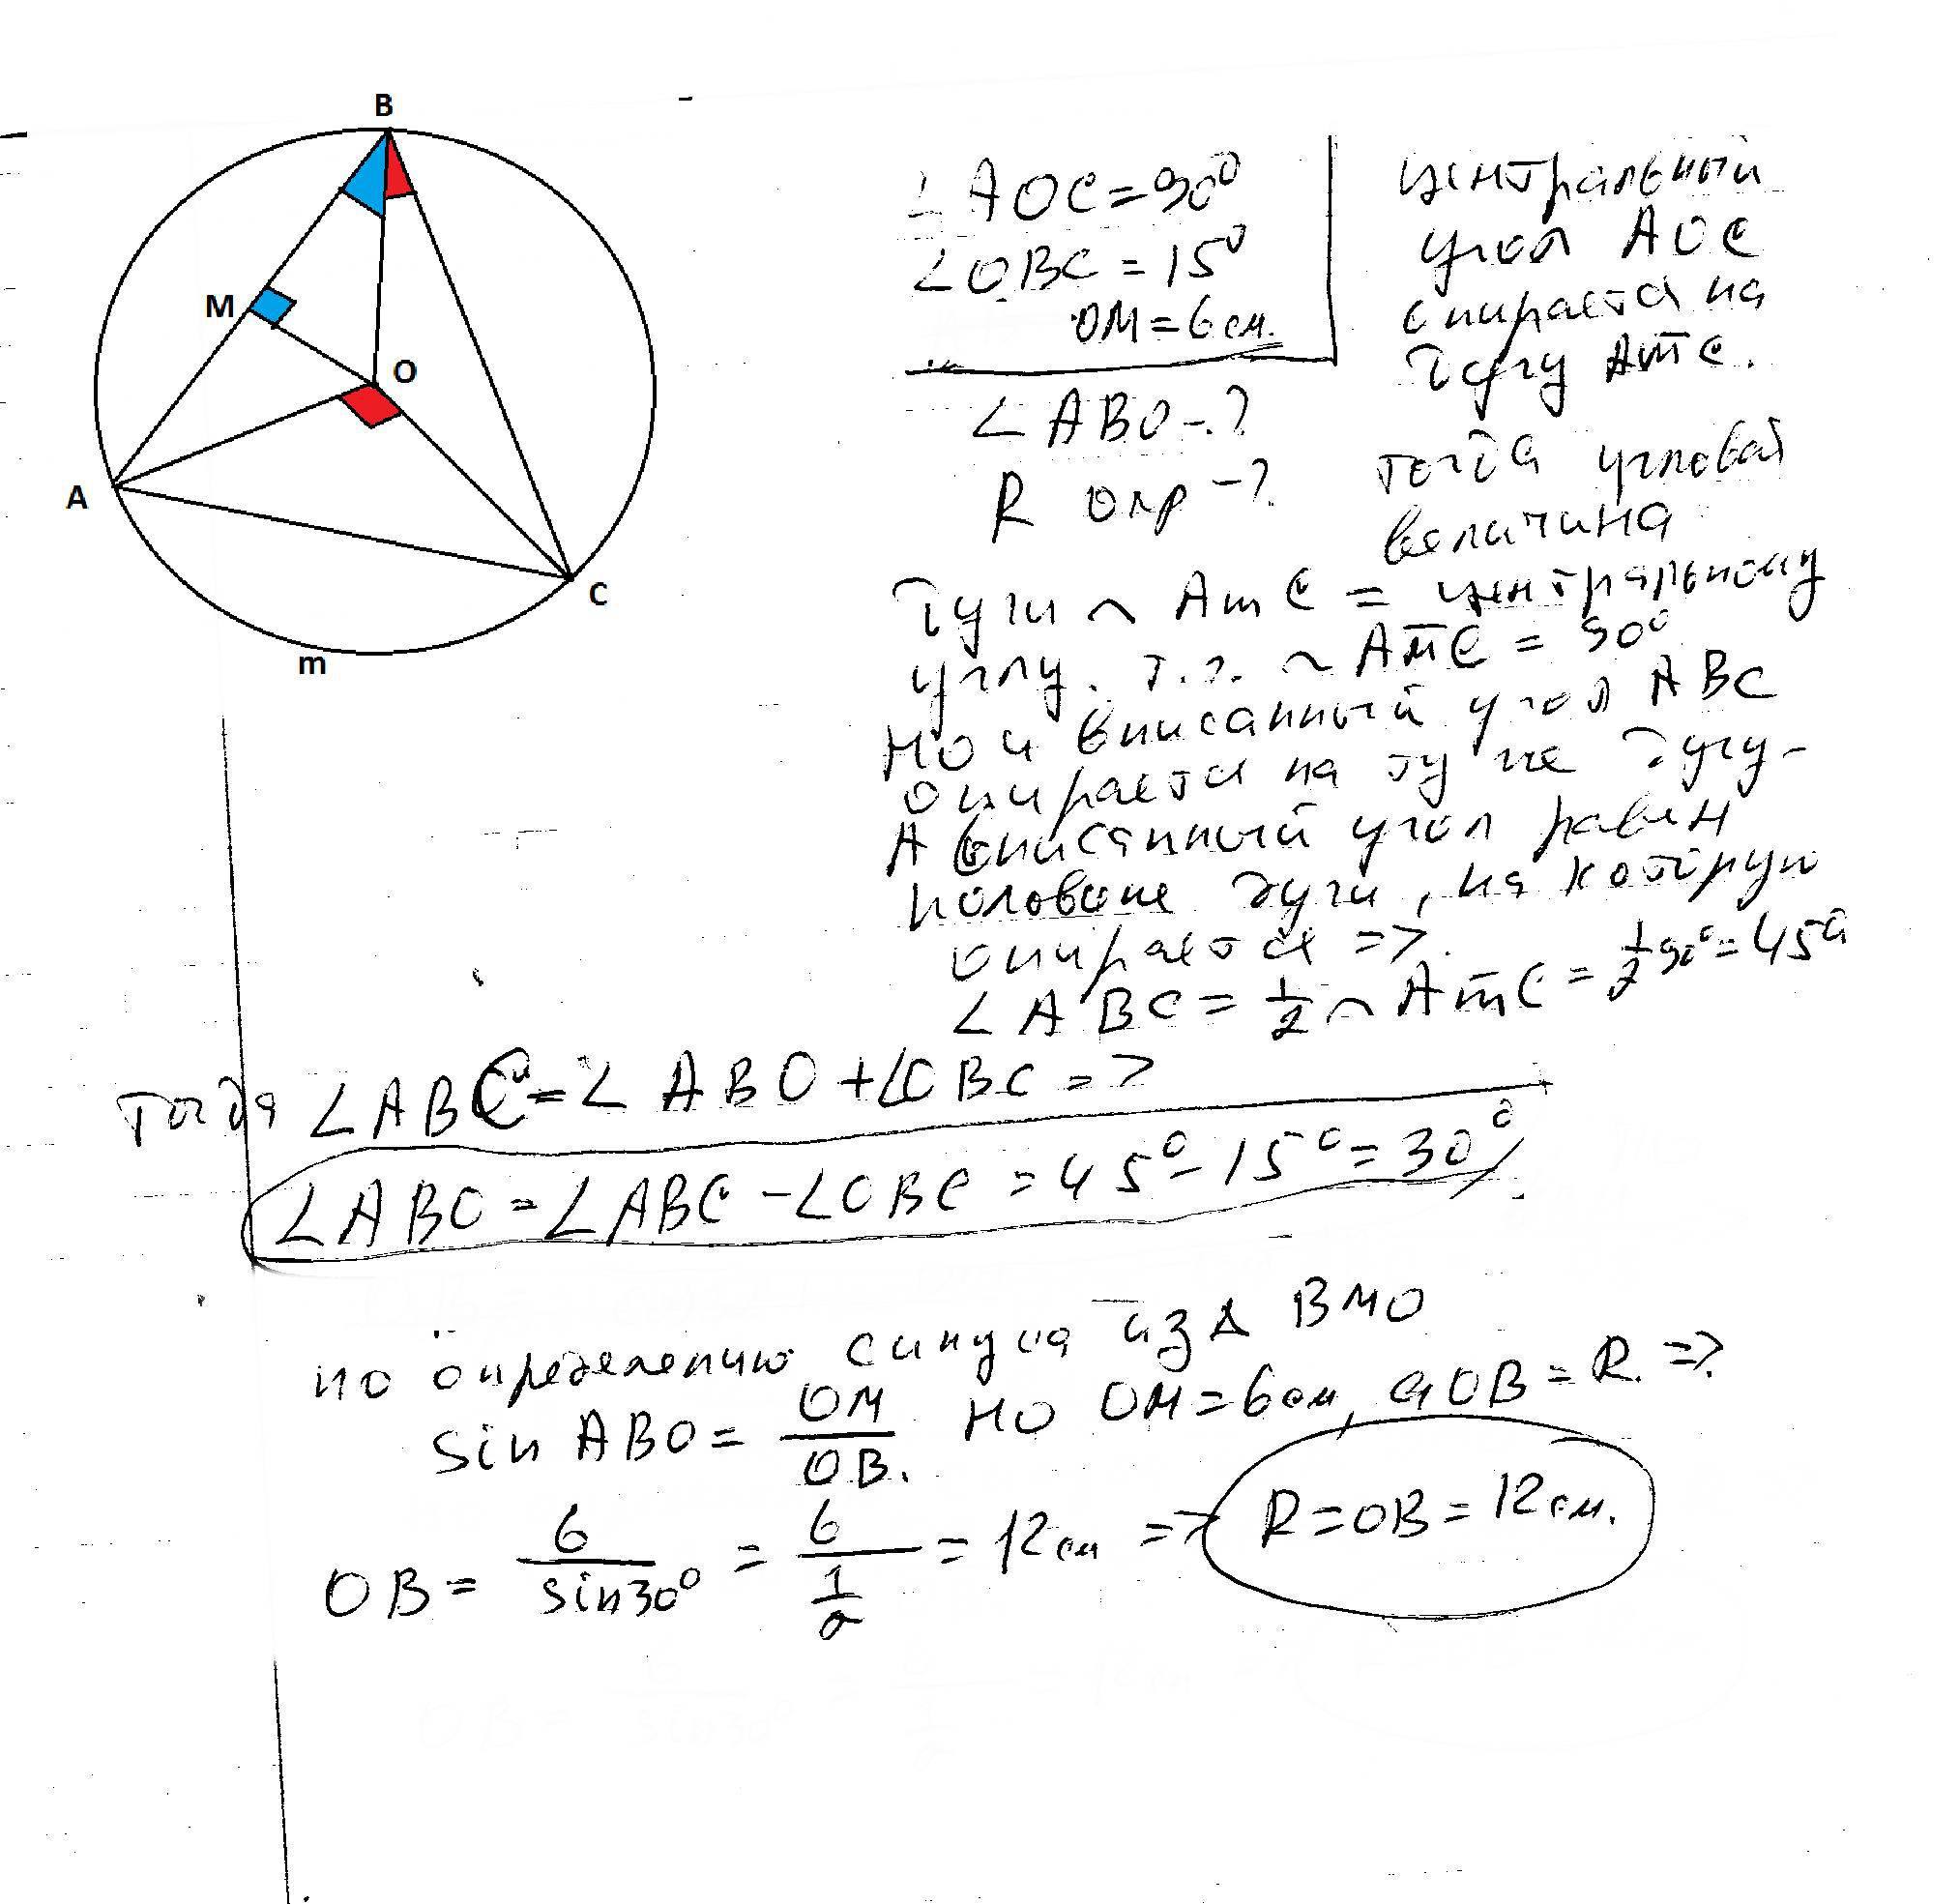 B
M
O
A
C
m
∠AOC=90°
∠OBC=15°
OM=6см.
∠ABO-?
R окр-?
центральный
угол AOC
опирается на
дугу AmC.
тогда угловая
величина
дуги ◠ AmC = центральному
углу. т.е. ◠ AmC = 90°
но и вписанный угол ABC
опирается на ту же дугу-
А вписанный угол равен
половине дуги, на которую
опирается =>
∠ABC = 1/2 ◠ AmC = 1/2 90° = 45°
тогда ∠ABC = ∠ABO + ∠OBC =>
∠ABO = ∠ABC - ∠OBC = 45° - 15° = 30°
по определению синуса из Δ BMO
sin ABO = OM/OB. но OM=6см, а OB=R. =>
OB = 6/sin30° = 6/(1/2) = 12см => R=OB=12см.